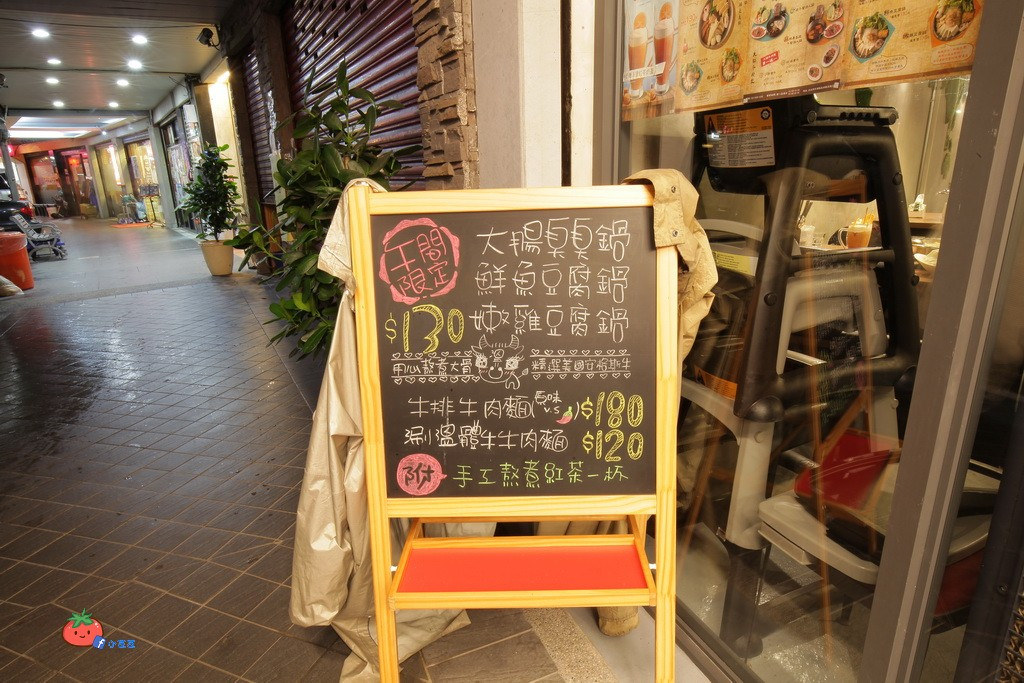 午間
限定
大腸臭臭鍋
鮮魚豆腐鍋
$130 嫩雞豆腐鍋
用心熬煮大骨 精選美國安格斯牛
牛排牛肉麵(原味 v.s )$180
涮溫體牛牛肉麵 $120
附 手工熬煮紅茶一杯
f 小茞茞